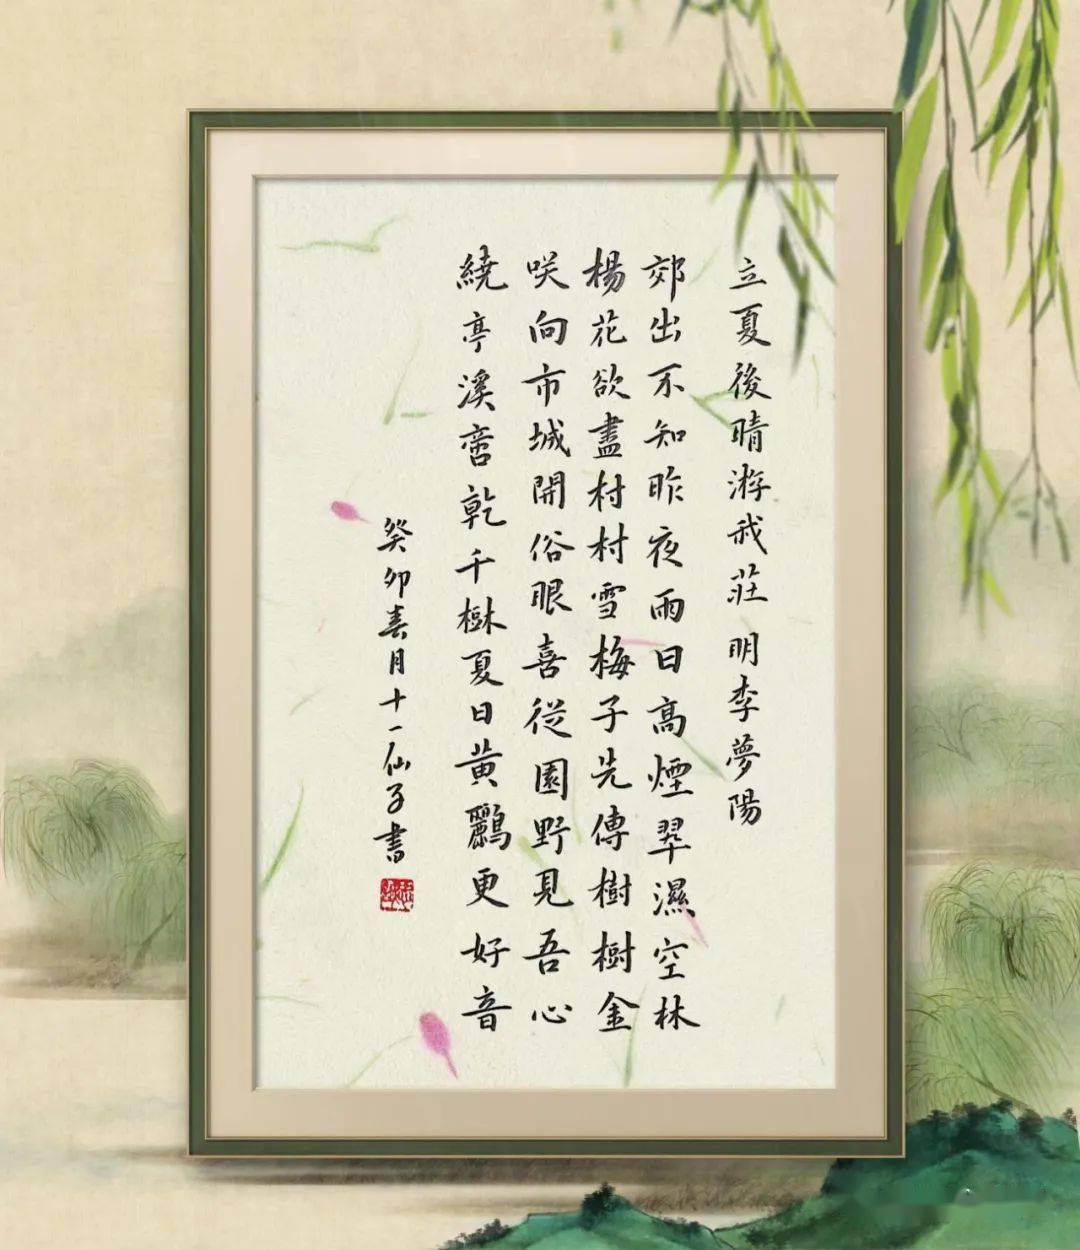 立夏後晴游我莊 明李夢陽
郊出不知昨夜雨日高煙翠濕空林
楊花欲盡村村雪梅子先傳樹樹金
咲向市城開俗眼喜從園野見吾心
繞亭溪乾千夏日黃鸝更好音
癸卯春月十一仙子書